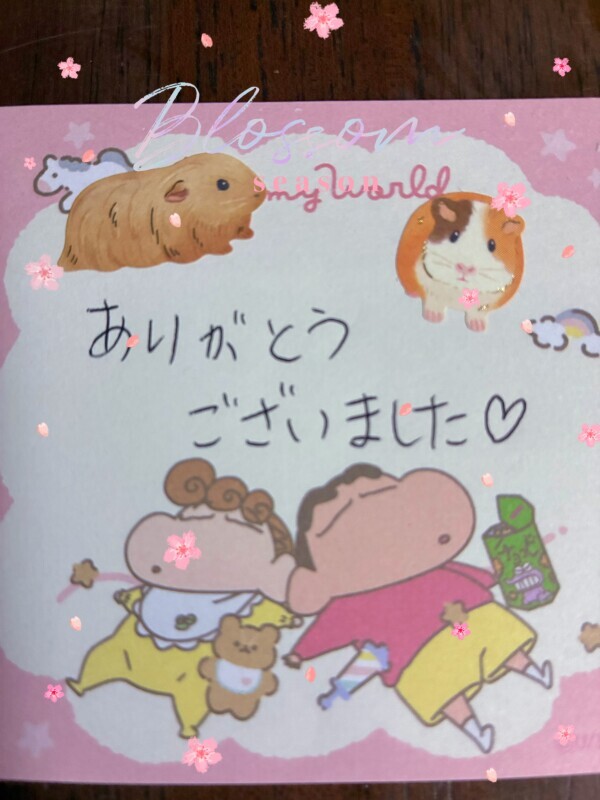 Blossom
season
my World
ありがとう
ございました♡